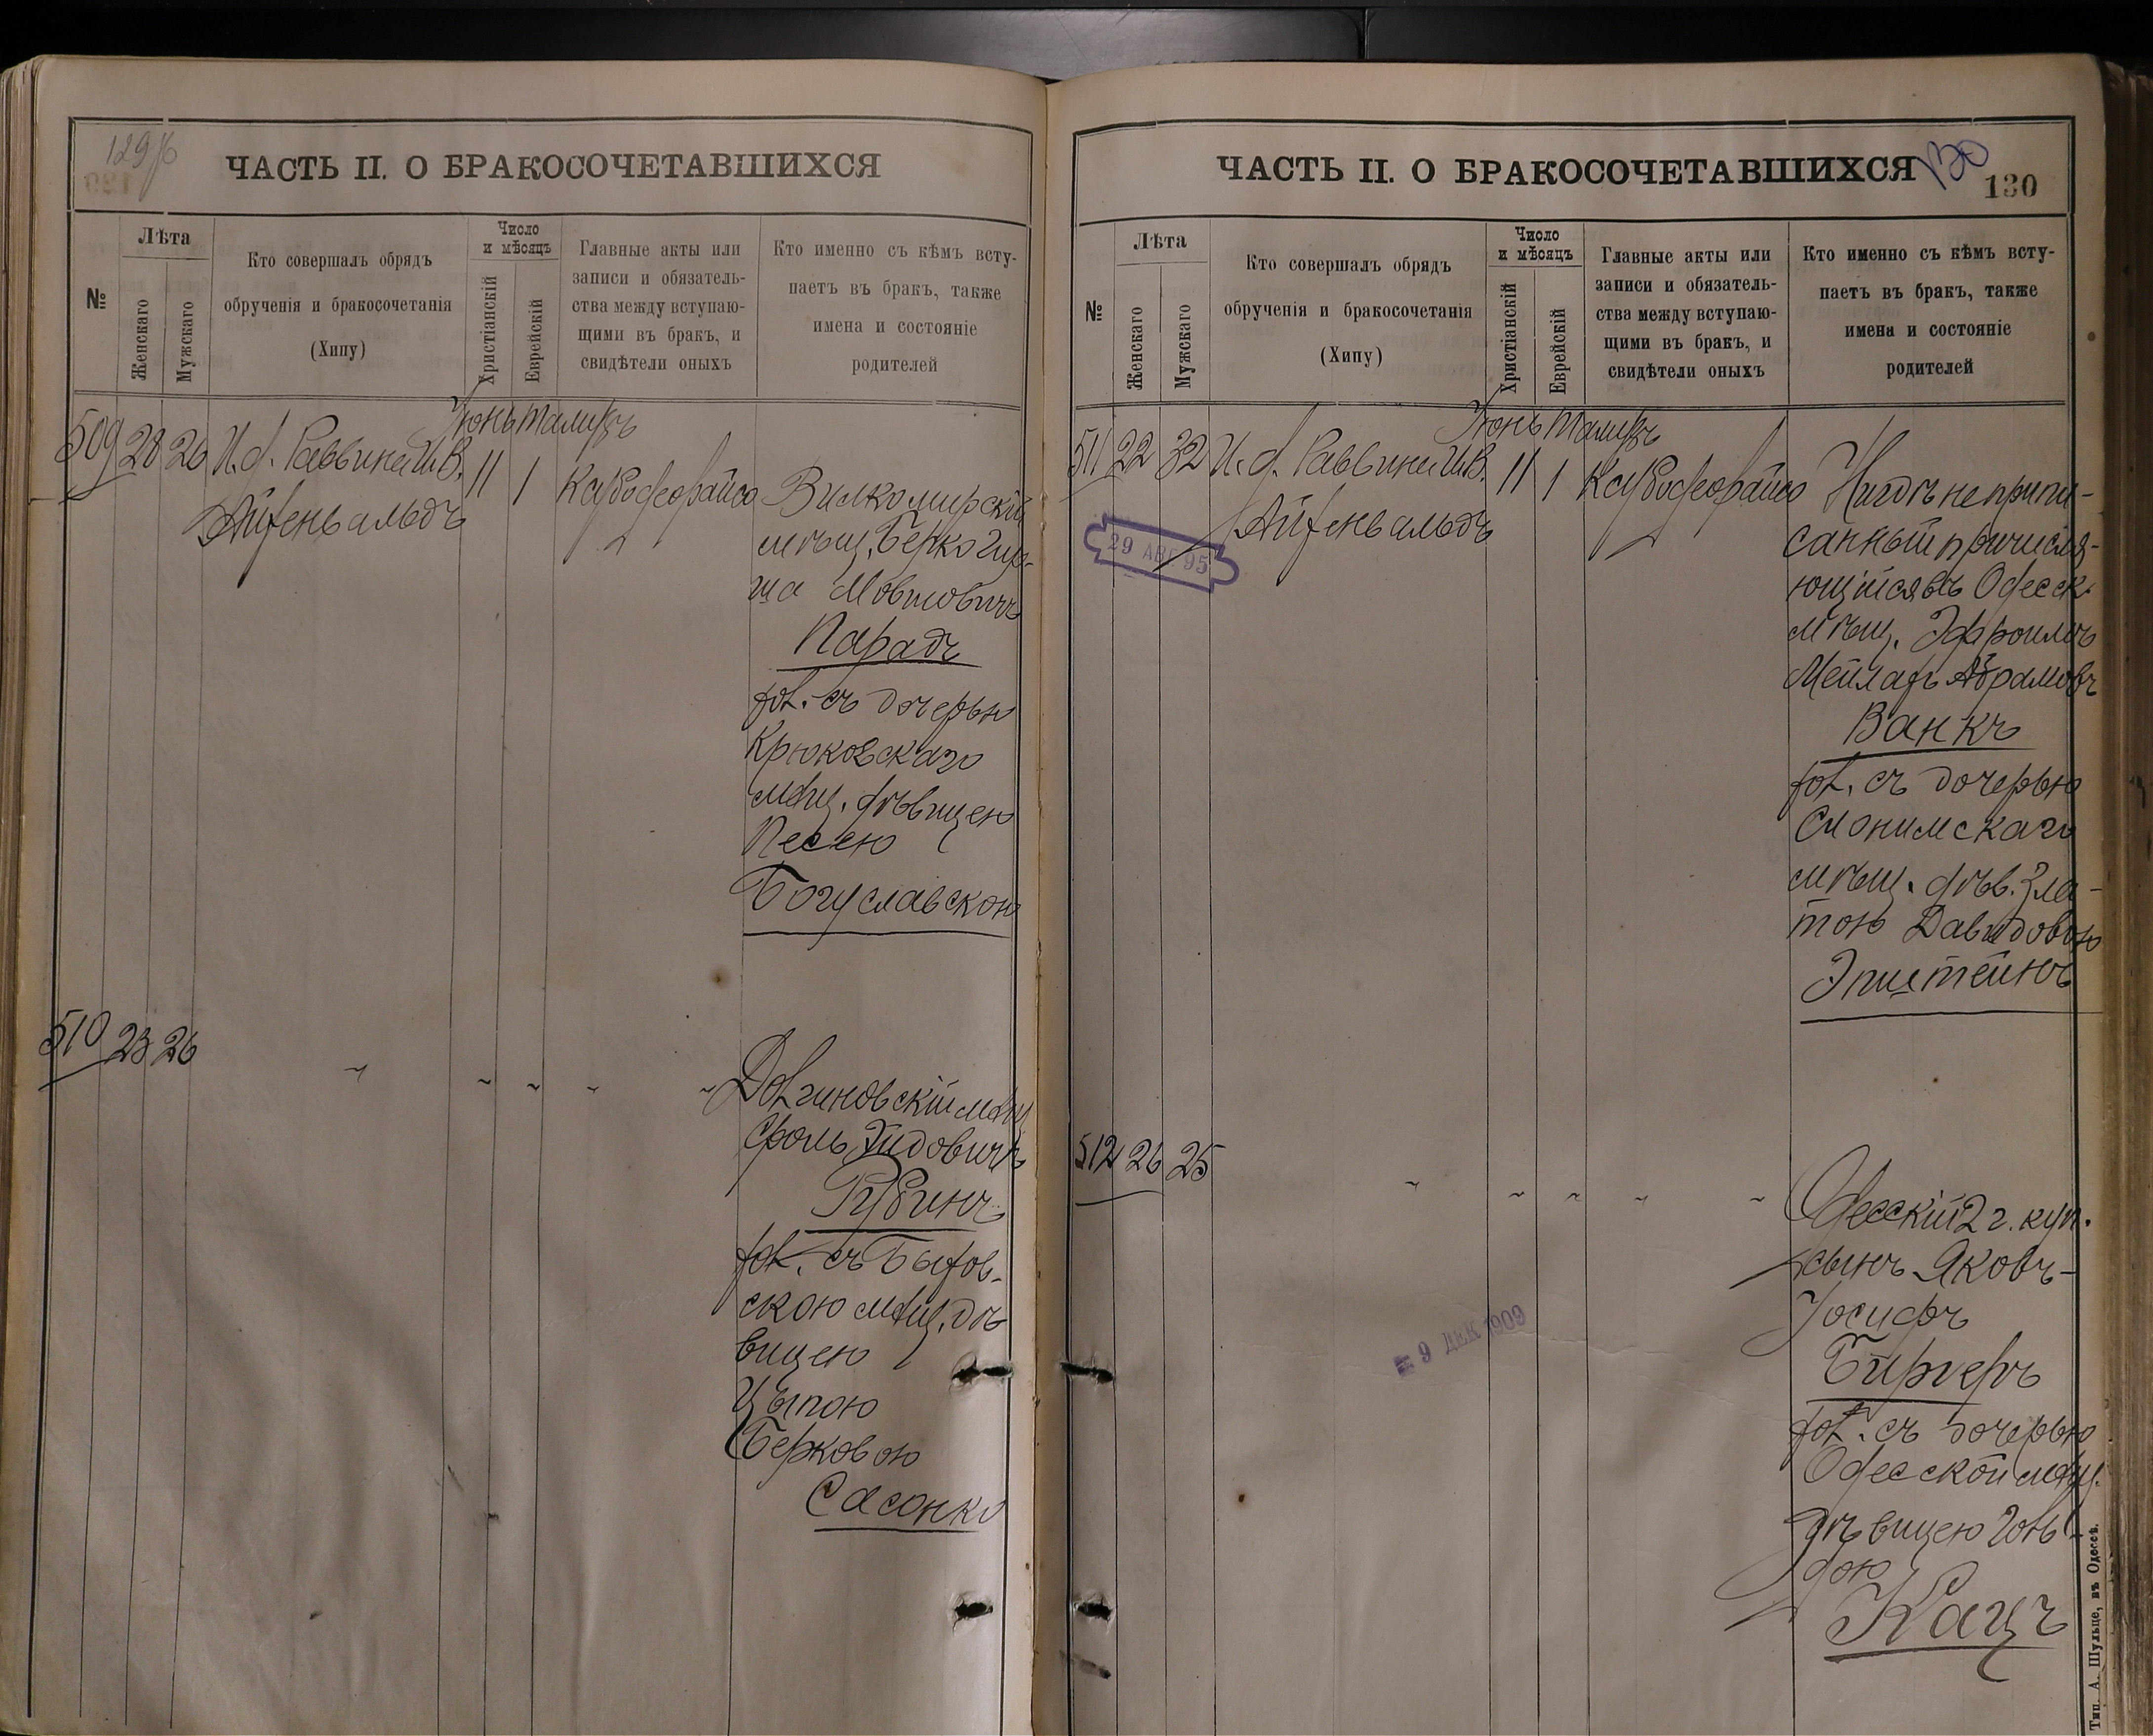 129 об
ЧАСТЬ II. О БРАКОСОЧЕТАВШИХСЯ
№
Лѣта
Женскаго
Мужскаго
Кто совершалъ обрядъ
обрученія и бракосочетанія
(Хипу)
Число
и мѣсяцъ
Христіанскій
Еврейскій
Главные акты или
записи и обязатель-
ства между вступаю-
щими въ бракъ, и
свидѣтели оныхъ
Кто именно съ кѣмъ всту-
паетъ въ бракъ, также
имена и состояніе
родителей
Іюнь Тамузъ
509 28 26 И.д. Раввина Ш.В. 11 1
Айзенвальдъ
Вилкомирскій
мѣщ. Берко Гир-
ша Мовшовичъ
Парадъ
хол. съ дочерью
Крюковскаго
мѣщ. дѣвицею
Песею
Богуславскою
510 23 26
Долгиновскій мѣщ.
Сроль Юдовичъ
Рубинъ
хол. съ Быхов-
скою мѣщ. дѣ
вицею
Цыпою
Берковою
Сасонко
ЧАСТЬ II. О БРАКОСОЧЕТАВШИХСЯ
130
130
№
Лѣта
Женскаго
Мужскаго
Кто совершалъ обрядъ
обрученія и бракосочетанія
(Хипу)
Число
и мѣсяцъ
Христіанскій
Еврейскій
Главные акты или
записи и обязатель-
ства между вступаю-
щими въ бракъ, и
свидѣтели оныхъ
Кто именно съ кѣмъ всту-
паетъ въ бракъ, также
имена и состояніе
родителей
Іюнь Тамузъ
511 22 32 И.д. Раввина Ш.В. 11 1
Айзенвальдъ
29 АВГ 95
Нигдѣ не припи-
санный причисля-
ющійся въ Одесск.
мѣщ. Эфроимъ
Мейлахъ Абрамовъ
Ванкъ
хол. съ дочерью
Слонимскаго
мѣщ. дѣв. Зла-
тою Давидовою
Эпштейнъ
512 26 25
Одесскій 2 г. куп.
сынъ Яковъ-
Іосифъ
Биргеръ
хол. съ дочерью
Одесской мѣщ.
дѣвицею Голь-
дою
Кацъ
9 ДЕК 1909
Тип. А. Шульце, въ Одессѣ.